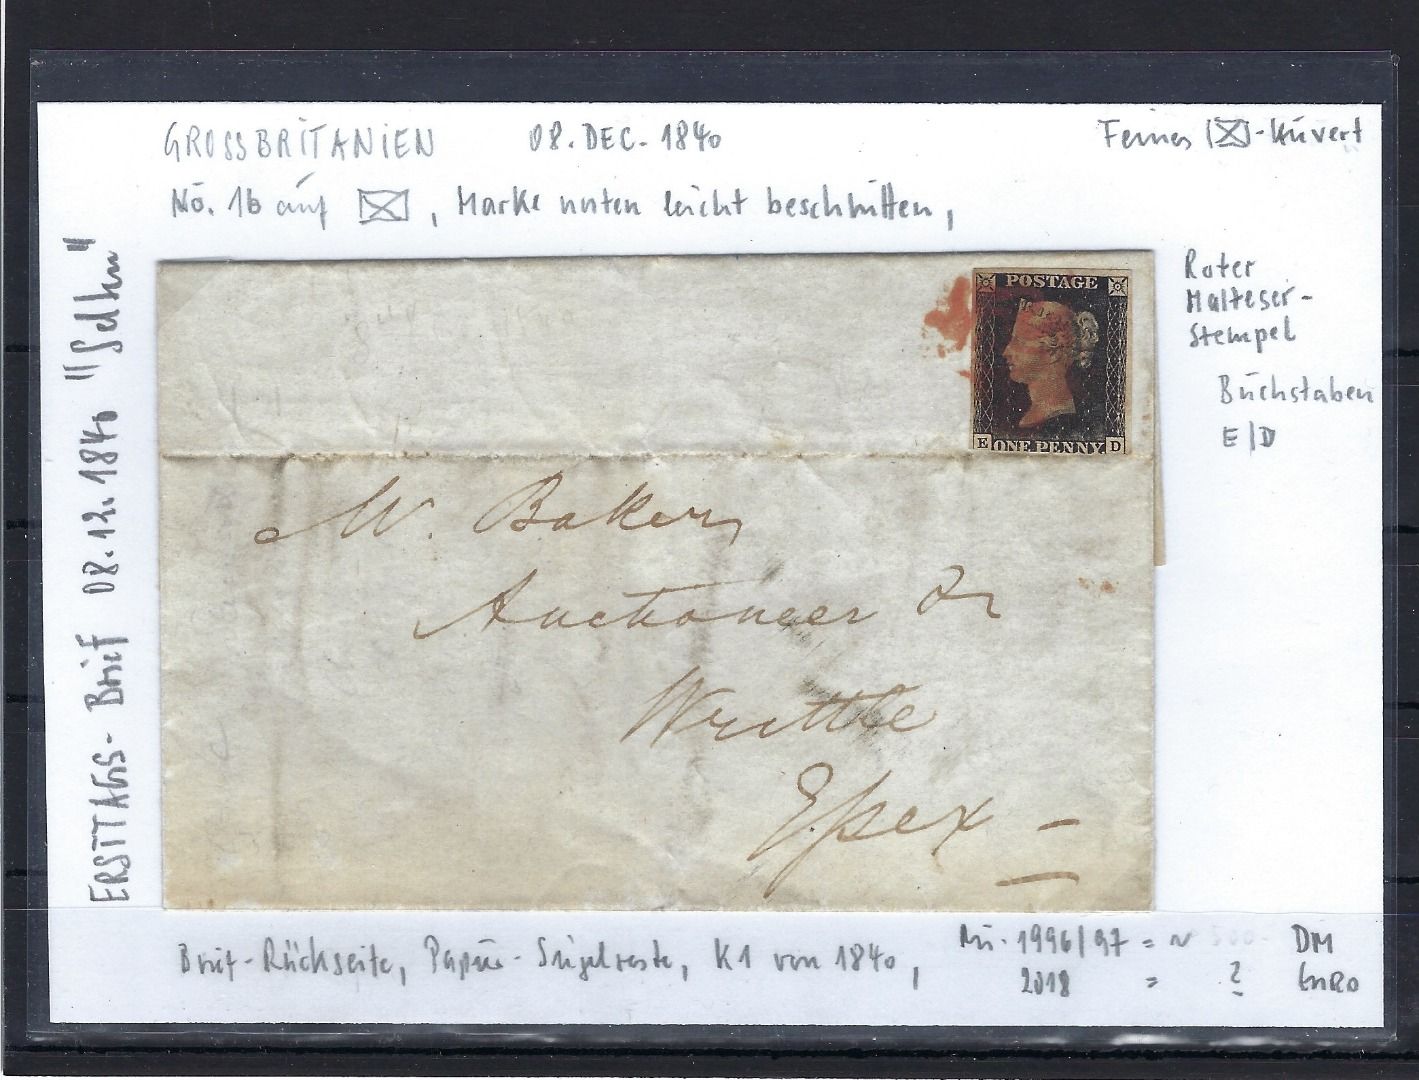 GROSSBRITANIEN 08. DEC. 1840 Feines -Kúvert
No. 1b aúf , Marke unten leicht beschnitten,
ERSTTAGS-Brief 08.12.1840 "Selten"
POSTAGE
E ONE PENNY D
Roter
Malteser-
Stempel
Búchstaben
E/D
Mr. Baker
Auctioneer
Writtle
Essex
Brief-Rückseite, Papier-Siegelreste, K1 von 1840,
Mi. 1996/97 = ~ 500.- DM
2018 = ? EURO